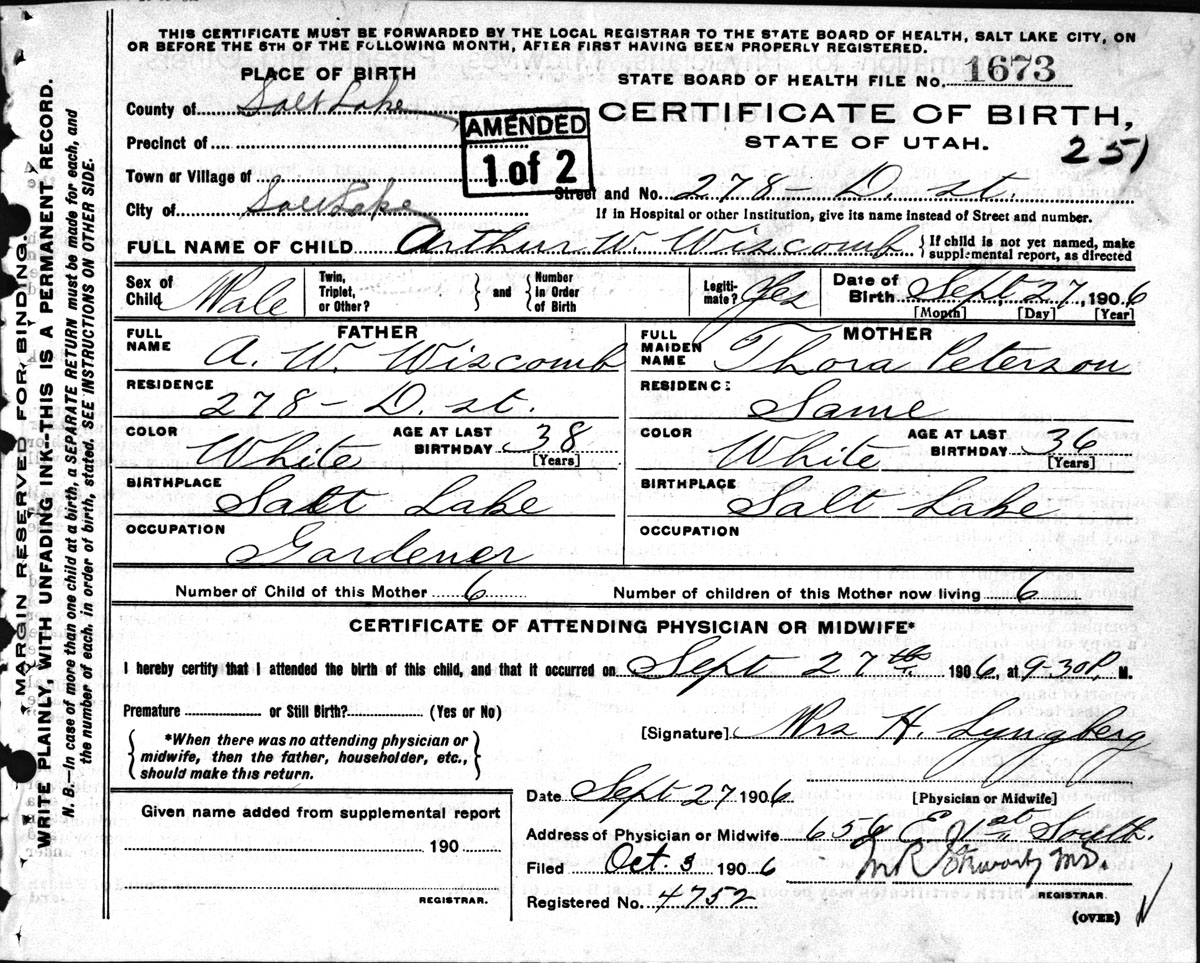 THIS CERTIFICATE MUST BE FORWARDED BY THE LOCAL REGISTRAR TO THE STATE BOARD OF HEALTH, SALT LAKE CITY, ON
OR BEFORE THE 5TH OF THE FOLLOWING MONTH, AFTER FIRST HAVING BEEN PROPERLY REGISTERED.
PLACE OF BIRTH
STATE BOARD OF HEALTH FILE No. 1673
County of Salt Lake
CERTIFICATE OF BIRTH,
AMENDED
1 of 2
Precinct of
STATE OF UTAH.
251
Town or Village of
Street and No. 278 - D. st.
City of Salt Lake
If in Hospital or other Institution, give its name instead of Street and number.
FULL NAME OF CHILD Arthur W. Wiscomb { If child is not yet named, make supplemental report, as directed
Sex of Child Male
Twin, Triplet, or Other? } and { Number in Order of Birth
Legitimate? Yes
Date of Birth Sept. 27, 1906
[Month] [Day] [Year]
FATHER
FULL NAME A. W. Wiscomb
RESIDENCE 278 - D. st.
COLOR White
AGE AT LAST BIRTHDAY 38 [Years]
BIRTHPLACE Salt Lake
OCCUPATION Gardener
MOTHER
FULL MAIDEN NAME Thora Peterson
RESIDENCE Same
COLOR White
AGE AT LAST BIRTHDAY 36 [Years]
BIRTHPLACE Salt Lake
OCCUPATION
Number of Child of this Mother 6
Number of children of this Mother now living 6
CERTIFICATE OF ATTENDING PHYSICIAN OR MIDWIFE*
I hereby certify that I attended the birth of this child, and that it occurred on Sept 27th 1906, at 9-30 P. M.
Premature or Still Birth? (Yes or No)
{ *When there was no attending physician or midwife, then the father, householder, etc., should make this return. }
[Signature] Mrs H. Lyngberg
[Physician or Midwife]
Date Sept 27 1906
Address of Physician or Midwife 656 E 1st South.
Given name added from supplemental report
190
REGISTRAR.
Filed Oct. 3 1906
M.D.
REGISTRAR.
Registered No. 4752
(OVER)
MARGIN RESERVED FOR BINDING.
WRITE PLAINLY, WITH UNFADING INK--THIS IS A PERMANENT RECORD.
N. B.—In case of more than one child at a birth, a SEPARATE RETURN must be made for each, and
the number of each, in order of birth, stated. SEE INSTRUCTIONS ON OTHER SIDE.